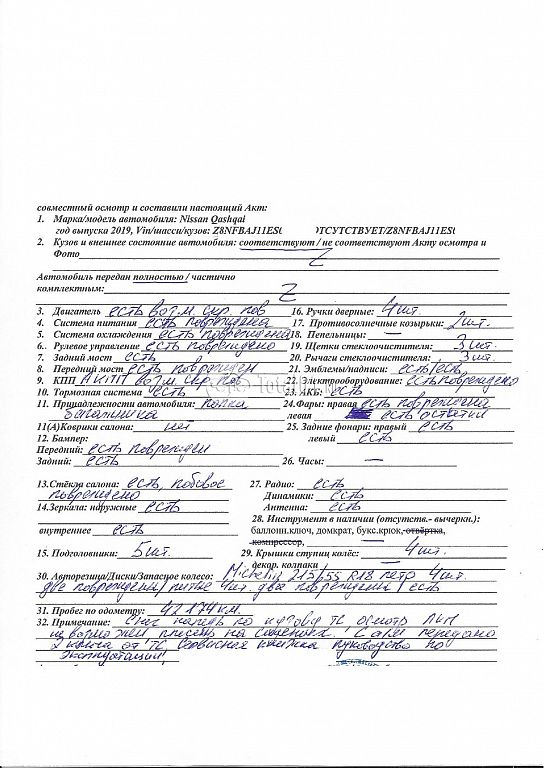 совместный осмотр и составили настоящий Акт:
1. Марка/модель автомобиля: Nissan Qashqai
год выпуска 2019, Vin/шасси/кузов: Z8NFBAJ11ES( )ТСУТСТВУЕТ/Z8NFBAJ11ES(
2. Кузов и внешнее состояние автомобиля: соответствуют / не соответствуют Акту осмотра и
Фото Z
Автомобиль передан полностью / частично
комплектным: Z
3. Двигатель есть возм. скр. пов 16. Ручки дверные: 4 шт.
4. Система питания есть повреждена 17. Противосолнечные козырьки: 2 шт.
5. Система охлаждения есть повреждена 18. Пепельницы: —
6. Рулевое управление есть повреждено 19. Щетки стеклоочистителя: 3 шт.
7. Задний мост есть 20. Рычаги стеклоочистителя: 3 шт.
8. Передний мост есть поврежден 21. Эмблемы/надписи: есть/есть
9. КПП АКПП возм. скр. пов 22. Электрооборудование: есть повреждено
10. Тормозная система есть 23. АКБ: есть
11. Принадлежности автомобиля: полка 24. Фары: правая есть повреждена
багажника левая есть остатки
11(А)Коврики салона: нет 25. Задние фонари: правый есть
12. Бампер: левый есть
Передний: есть поврежден
Задний: есть 26. Часы: —
13. Стёкла салона: есть, лобовое 27. Радио: есть
повреждено Динамики: есть
14. Зеркала: наружные есть Антенна: есть
28. Инструмент в наличии (отсутств.- вычеркн.):
внутреннее есть баллонн.ключ, домкрат, букс.крюк, отвёртка,
компрессор, —
15. Подголовники: 5 шт. 29. Крышки ступиц колёс: 4 шт.
декор. колпаки —
30. Авторезина/Диски/Запасное колесо: Michelin 215/55 R18 летр 4 шт.
две повреждены/ литые 4шт. два повреждены/ есть
31. Пробег по одометру: 42174 км.
32. Примечание: Снег наледь по кузову ТС осмотр ЛКП
не возможен плесень на сиденьях. С а/м передано
2 ключа от ТС Сервисная книжка руководство по
эксплуатации